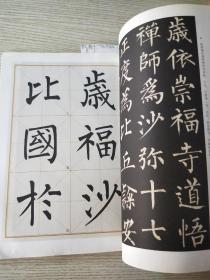 歲依崇福寺道悟
禪師爲沙弥十七
正度爲比丘隸安
歲福沙
比國於